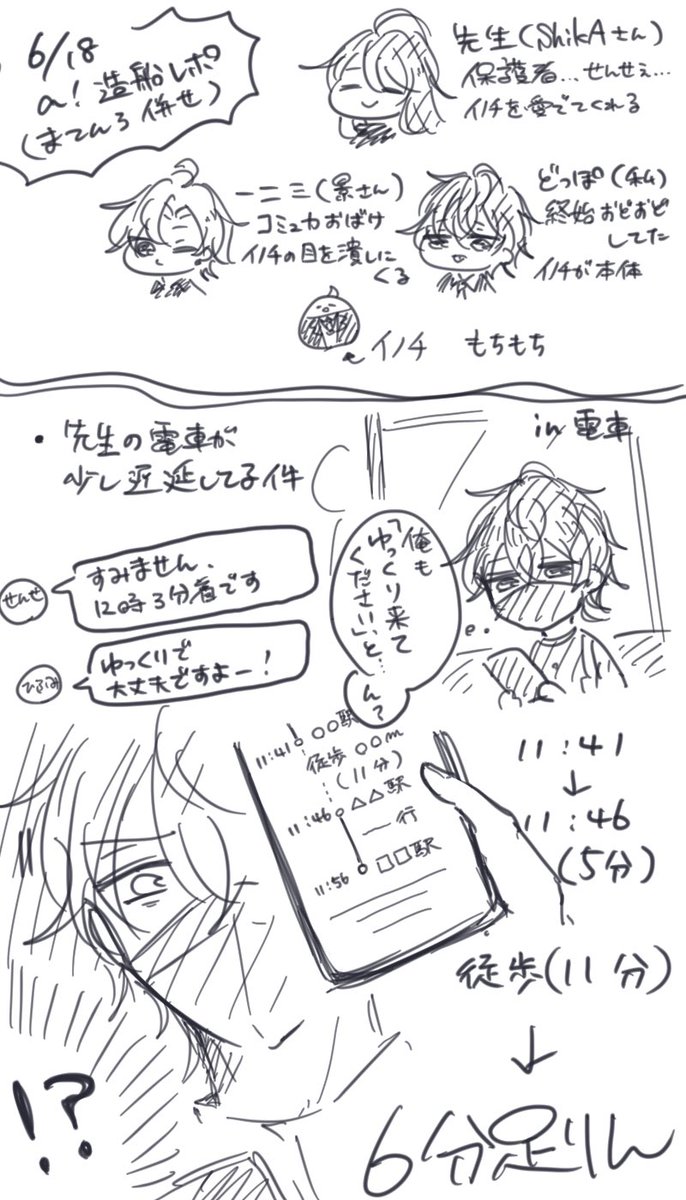 6/18
a! 造船レポ
(まてんろ 併せ)
先生(ShikAさん)
保護者…せんせぇ…
イノチを愛でてくれる
一二三(景さん)
コミュカおばけ
イノチの目を潰しに
くる
どっぽ(私)
終始おどおど
してた
イノチが本体
イノチ もちもち
・先生の電車が
少し遅延してる件
in 電車
せんせ
すみません、
12時3分着です
ひふみ
ゆっくりで
大丈夫ですよー!
俺も
「ゆっくり来て
ください」、と…
ん?
11:41 〇〇駅
徒歩 〇〇m
(11分)
11:46 △△駅
―行
11:56 □□駅
11:41
↓
11:46
(5分)
徒歩(11分)
↓
6分足りん
!?